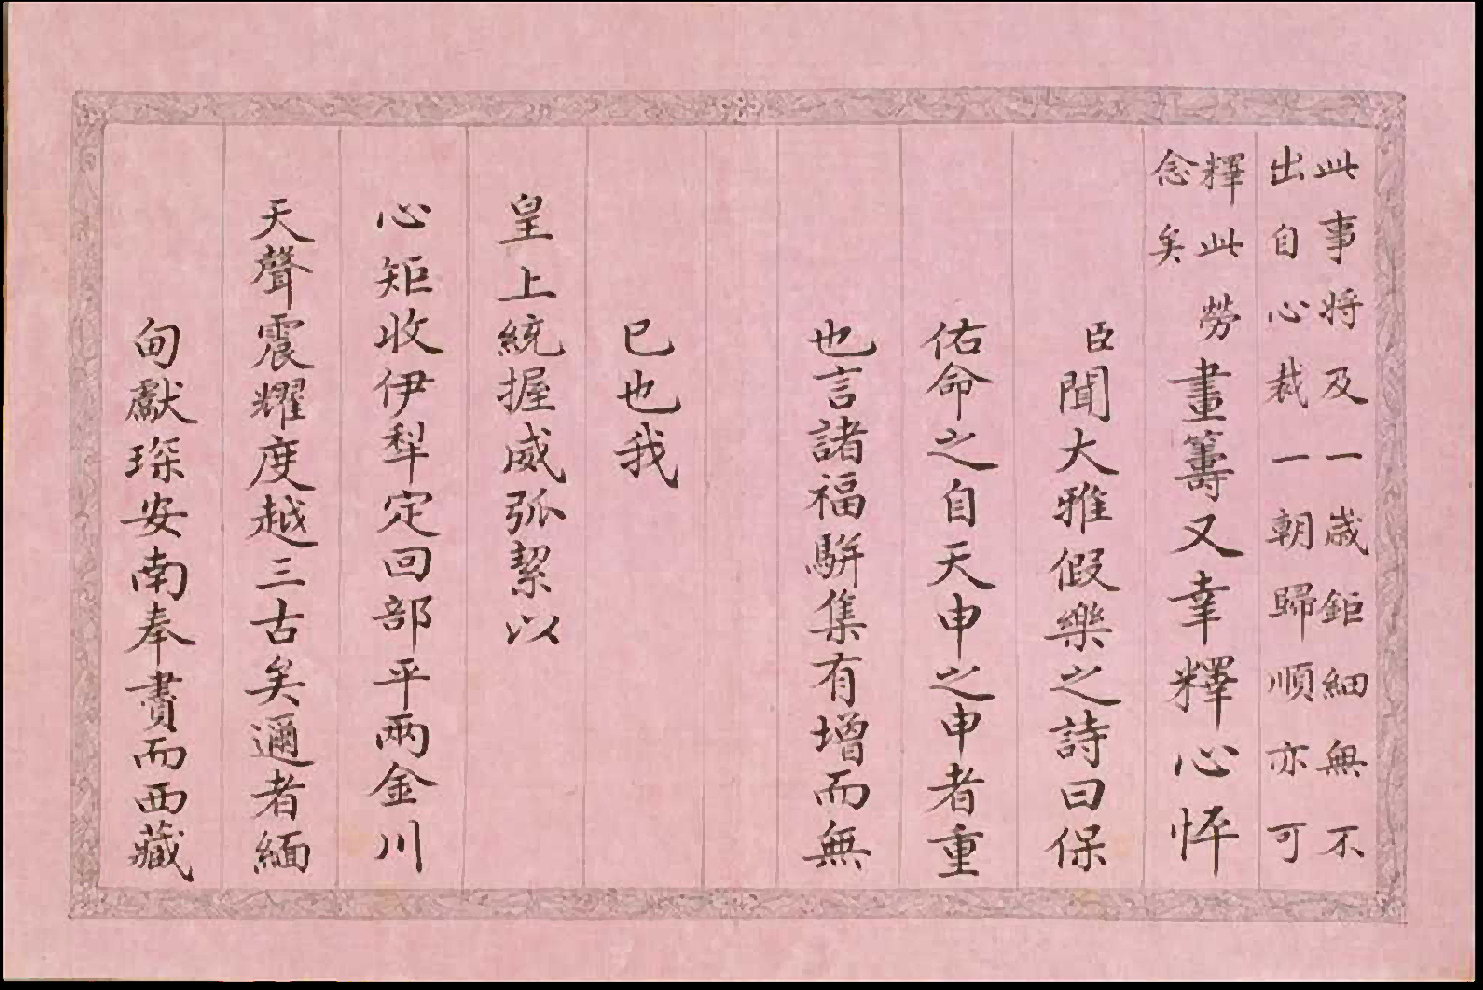 此事将及一歳鉅細無不
出自心裁一朝歸順亦可
釋此
念矣
勞畫籌又幸釋心怦
臣聞大雅假樂之詩曰保
佑命之自天申之申者重
也言諸福駢集有增而無
已也我
皇上統握威弧絜以
心矩收伊犁定回部平兩金川
天聲震耀度越三古矣邇者緬
甸獻琛安南奉賮而西藏